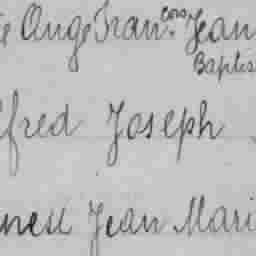 Ange Fran.cois Jean
Baptis
fred Joseph
Jean Mari